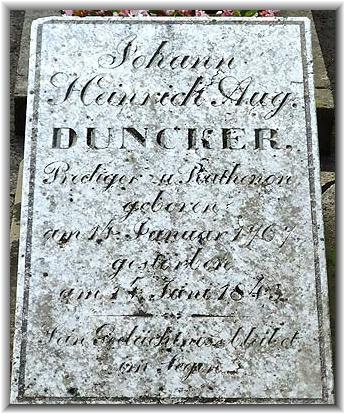 Johann
Heinrich Aug.
DUNCKER.
Prediger zu Rathenow
geboren
am 14. Januar 1767
gestorben
am 14. Juni 1843
Sein Gedächtniss bleibet
im Segen